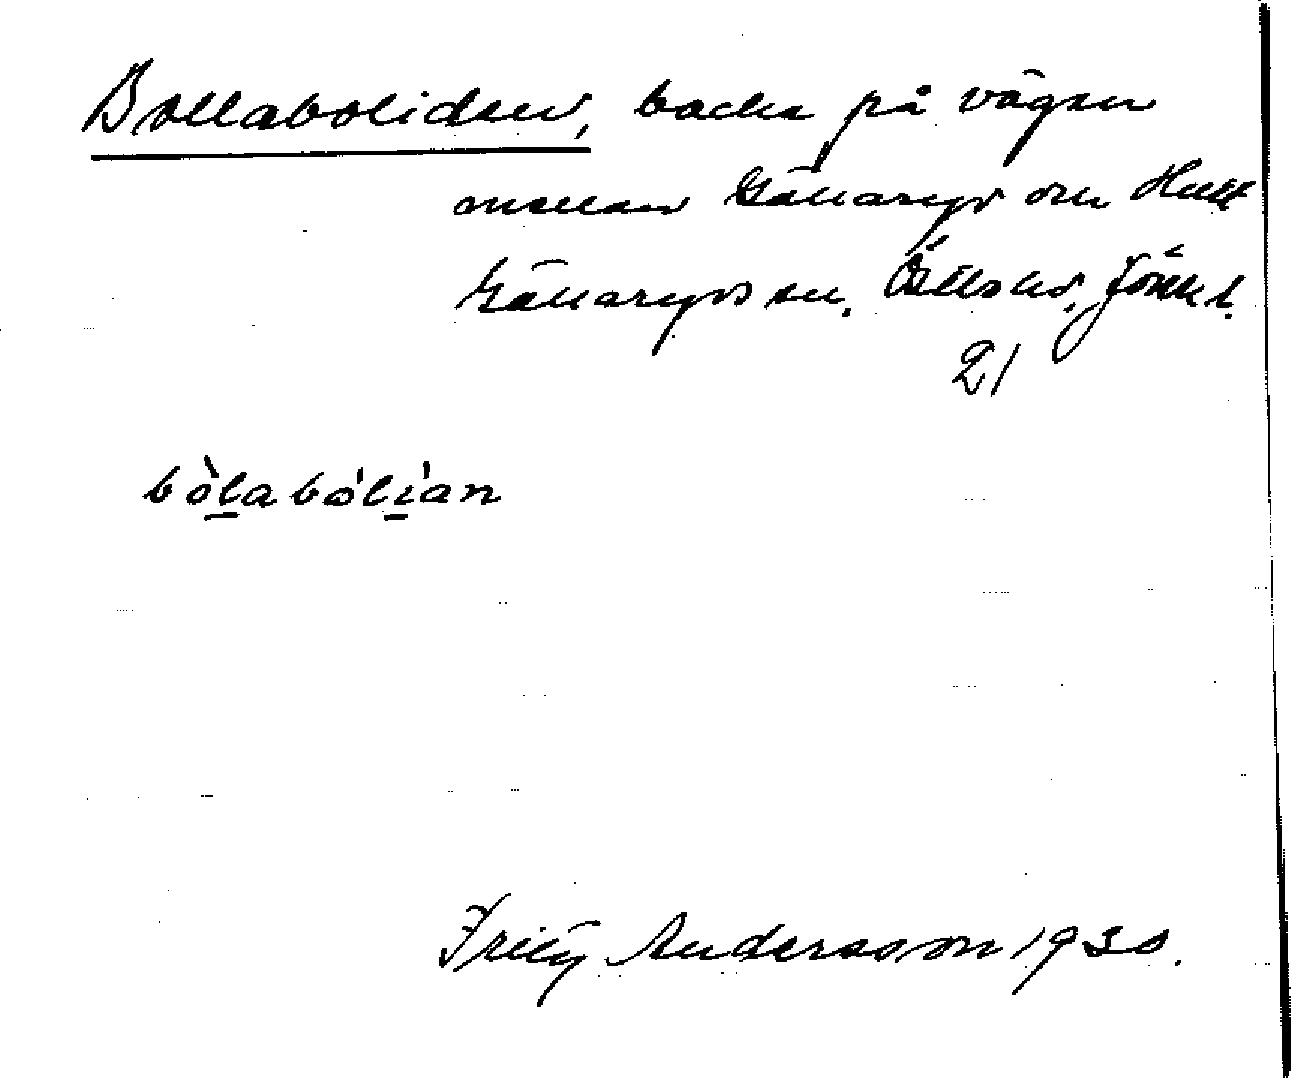 Bollaboliden, backe på vägen
mellan Gällaryd och Hult
Gällaryds sn. Östbo hd, Jönk l.
21
bòlabólían
Fritz Andersson 1930.